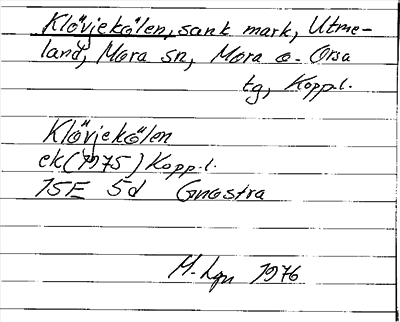 Klövjekölen, sank mark, Utme-
land, Mora sn, Mora o. Orsa
tg, Kopp.l.
Klövjekölen
ek (1975) Kopp.l.
15E 5d Gnostra
M. Lgn 1976